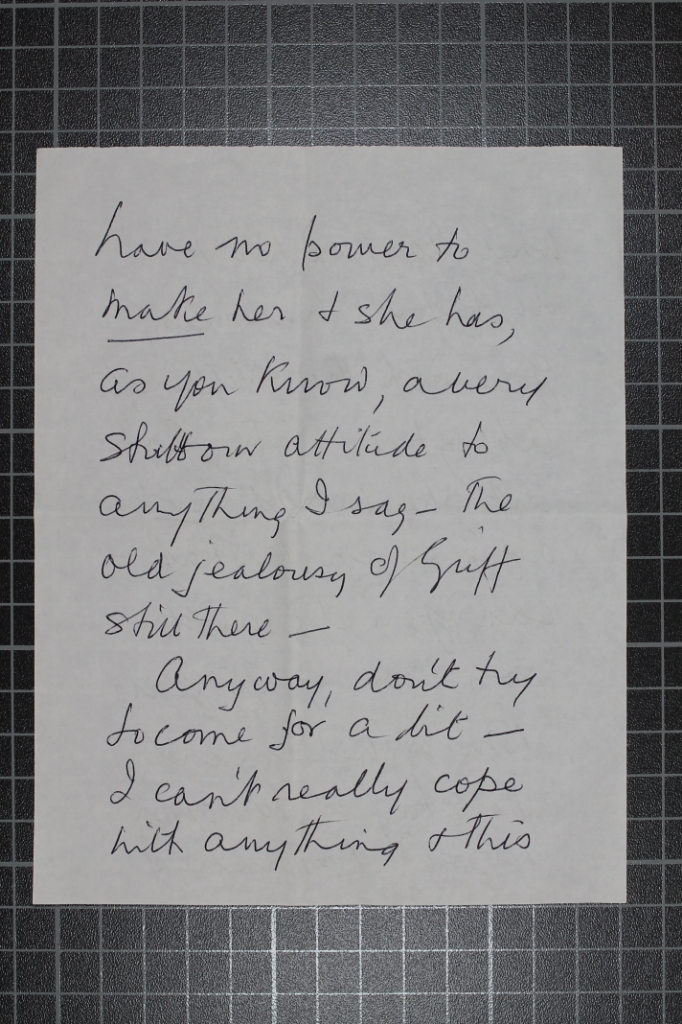 have no power to
make her & she has,
as you know, a very
stubborn attitude to
anything I say – The
old jealousy of Griff
still there –
Anyway, don't try
to come for a bit –
I can't really cope
with anything & this